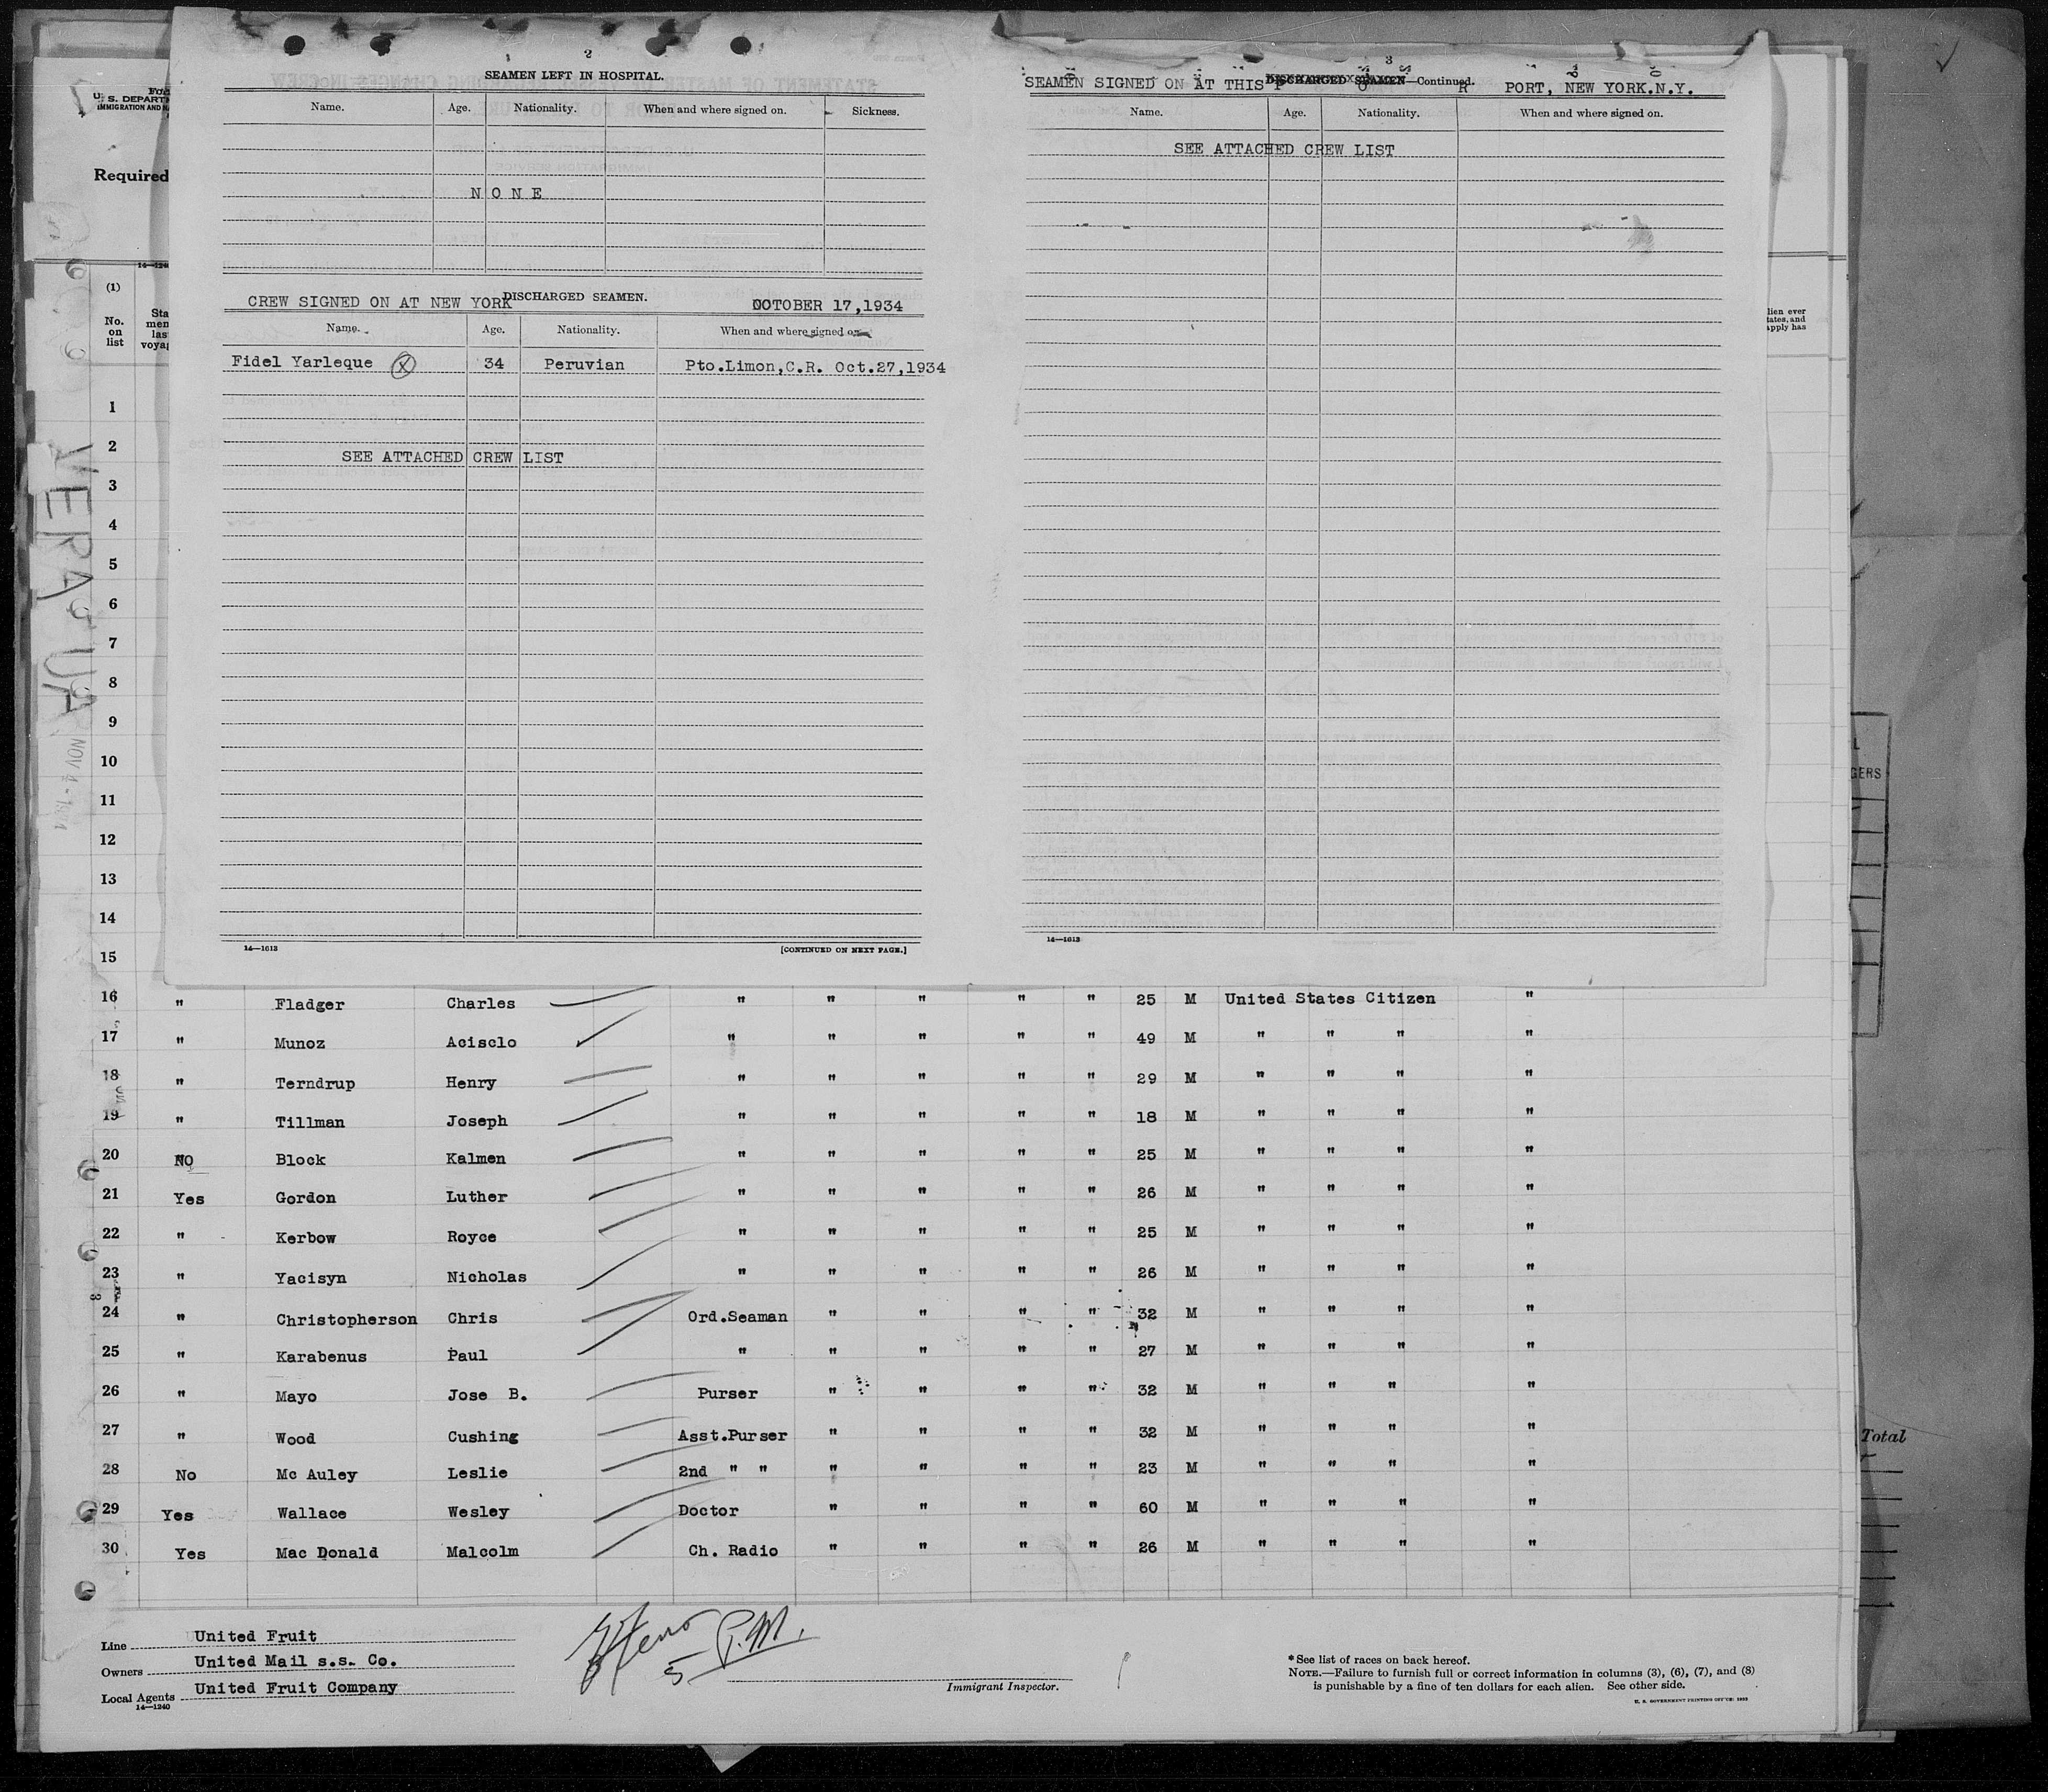 2
SEAMEN LEFT IN HOSPITAL.
Name. Age. Nationality. When and where signed on. Sickness.
N O N E
CREW SIGNED ON AT NEW YORK DISCHARGED SEAMEN. OCTOBER 17,1934
Name. Age. Nationality. When and where signed on
Fidel Yarleque X 34 Peruvian Pto.Limon,C.R. Oct.27,1934
SEE ATTACHED CREW LIST
14—1613 [CONTINUED ON NEXT PAGE.]
3
SEAMEN SIGNED ON AT THIS P O R PORT, NEW YORK.N.Y.
DISCHARGED SEAMEN—Continued.
Name. Age. Nationality. When and where signed on.
SEE ATTACHED CREW LIST
14—1613
U. S. DEPART
IMMIGRATION AND
Required
14—1240
(1)
No. on list
Sta
men
las
voyag
lien ever
tates, and
apply has
VERAGUA
NOV 4 - 1934
1
2
3
4
5
6
7
8
9
10
11
12
13
14
15
16 " Fladger Charles " " " " " 25 M United States Citizen "
17 " Munoz Acisclo " " " " " 49 M " " " "
18 " Terndrup Henry " " " " " 29 M " " " "
19 " Tillman Joseph " " " " " 18 M " " " "
20 NO Block Kalmen " " " " " 25 M " " " "
21 Yes Gordon Luther " " " " " 26 M " " " "
22 " Kerbow Royce " " " " " 25 M " " " "
23 " Yacisyn Nicholas " " " " " 26 M " " " "
24 " Christopherson Chris Ord.Seaman " " " " 32 M " " " "
25 " Karabenus Paul " " " " " 27 M " " " "
26 " Mayo Jose B. Purser " " " " 32 M " " " "
27 " Wood Cushing Asst.Purser " " " " 32 M " " " "
28 No Mc Auley Leslie 2nd " " " " " " 23 M " " " "
29 Yes Wallace Wesley Doctor " " " " 60 M " " " "
30 Yes Mac Donald Malcolm Ch. Radio " " " " 26 M " " " "
GERS
Total
Line United Fruit
Owners United Mail s.s. Co.
Local Agents United Fruit Company
14—1240
5 P.M.
Immigrant Inspector.
*See list of races on back hereof.
NOTE.—Failure to furnish full or correct information in columns (3), (6), (7), and (8)
is punishable by a fine of ten dollars for each alien. See other side.
U. S. GOVERNMENT PRINTING OFFICE: 1933